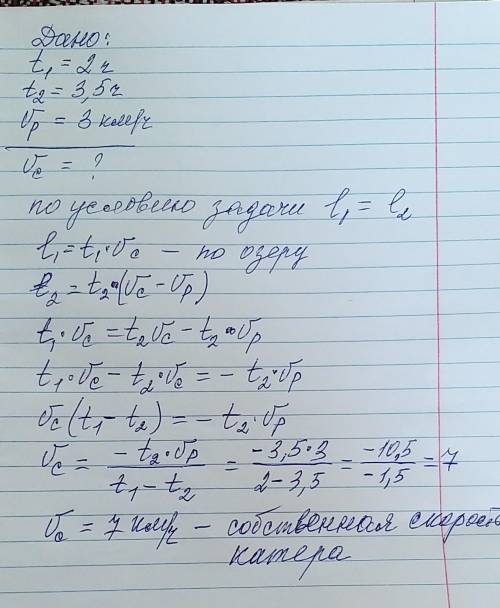 Дано:
t₁ = 2 ч
t₂ = 3,5 ч
Vр = 3 км/ч
Vс = ?
по условию задачи l₁ = l₂
l₁ = t₁·Vс — по озеру
l₂ = t₂·(Vс − Vр)
t₁·Vс = t₂Vс − t₂·Vр
t₁·Vс − t₂·Vс = − t₂·Vр
Vс(t₁ − t₂) = − t₂·Vр
Vс = (− t₂·Vр)/(t₁ − t₂) = (−3,5·3)/(2 − 3,5) = (−10,5)/(−1,5) = 7
Vс = 7 км/ч — собственная скорость
катера